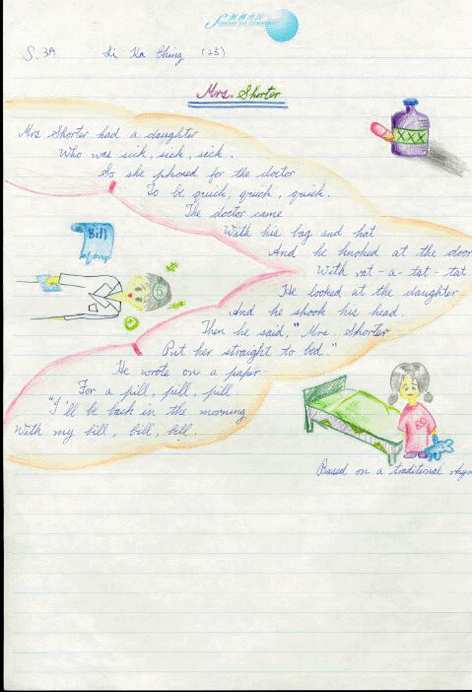 S. 3A Li Ka Ching
Mrs. Shorter
Mrs Shorter had a daughter
Who was sick, sick, sick.
So she phoned for the doctor
To be quick, quick, quick.
The doctor came
With his bag and hat
And he knoked at the door
With rat - a - tat - tat
He looked at the daughter
And he shook his head
Then he said, "Mrs. Shorter
Put her straight to bed."
He wrote on a paper
For a pill, pill, pill
"I'll be back in the morning
With my bill, bill, bill.
XXX
Bill
Based on a traditional rhy